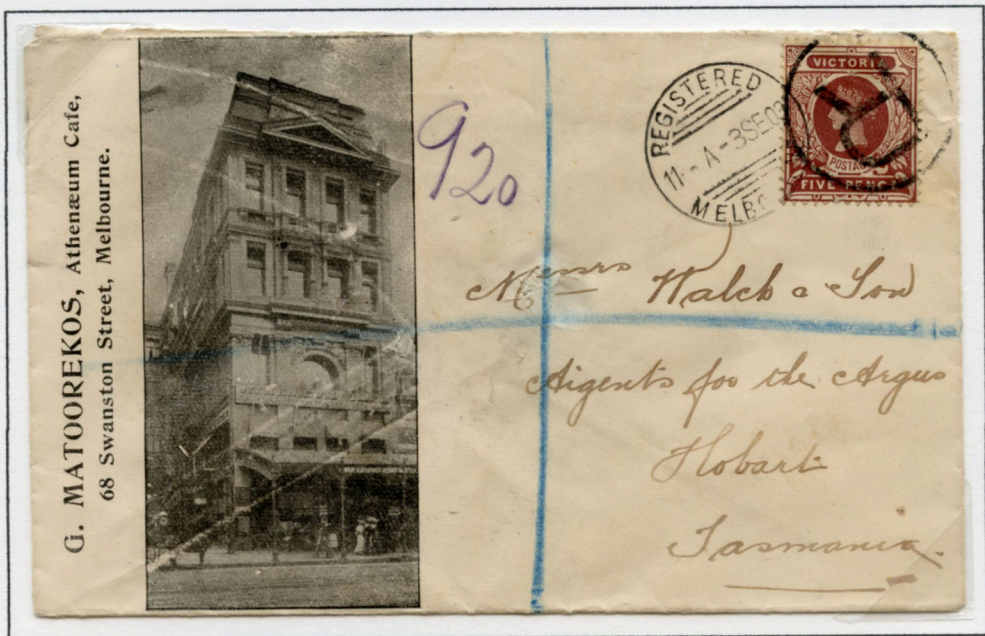 G. MATOOREKOS, Athenæum Cafe,
68 Swanston Street, Melbourne.
920
REGISTERED
11 - A - 3 SE 0
MELBO
VICTORIA
POSTAGE
FIVE PENCE
Messrs Walch & Son
Agents for the Argus
Hobart
Tasmania.